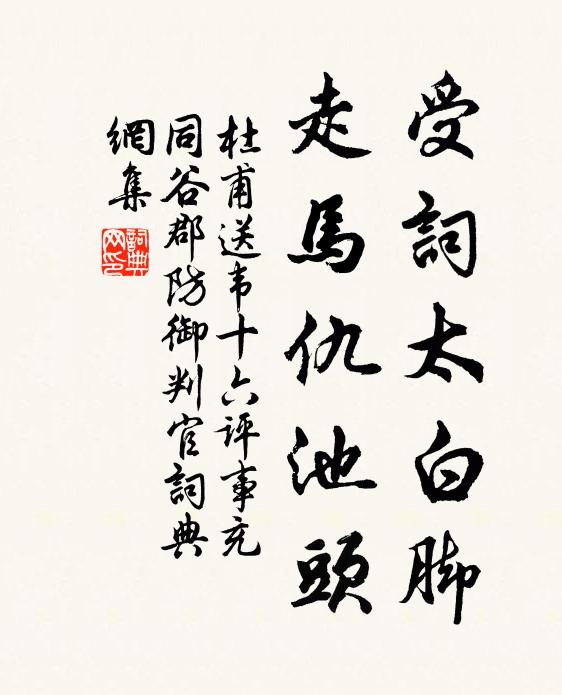 受詞太白脚
走馬仇池頭
杜甫送韦十六評事充
同谷郡防御判官詞典
網集
詞典
网印